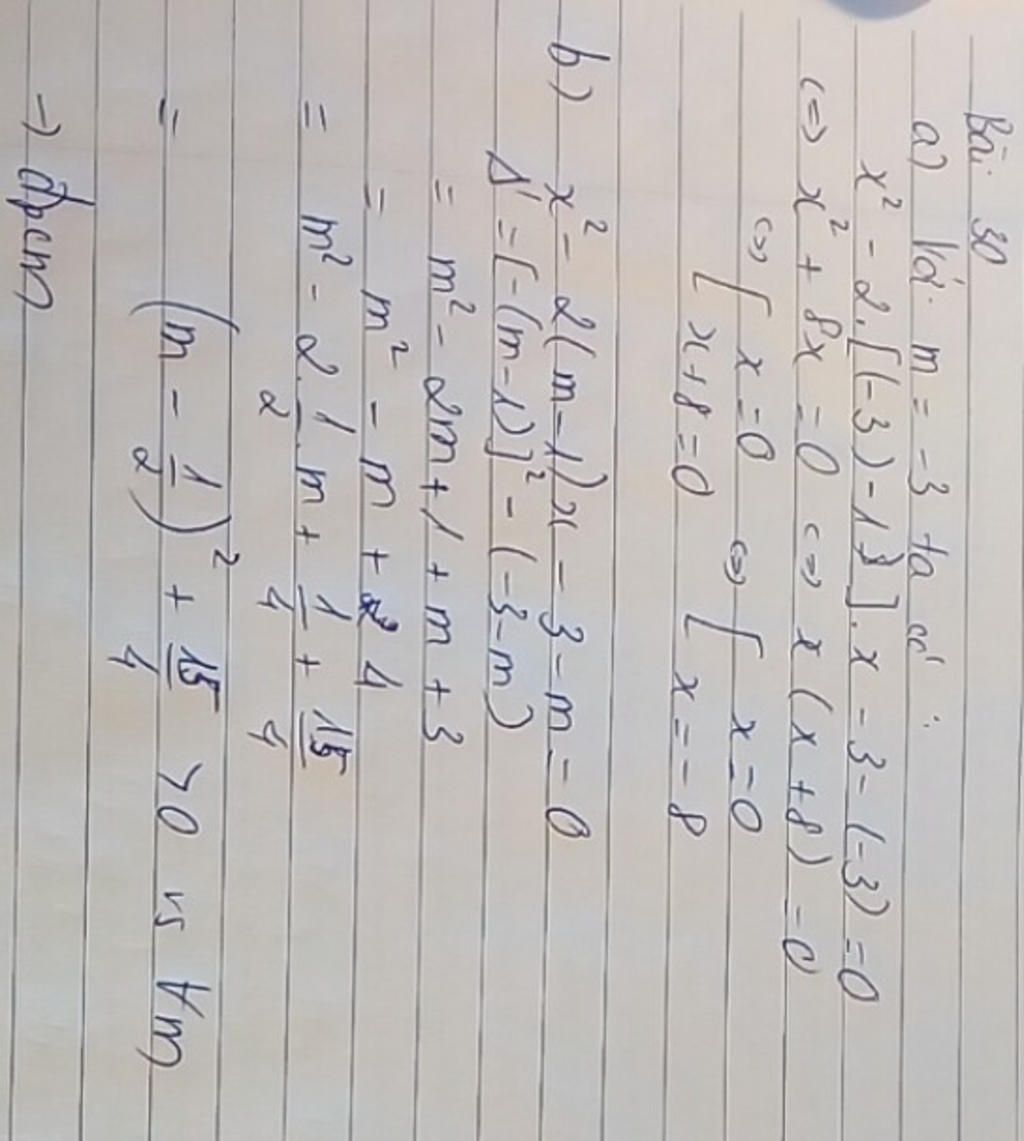 Bài 30
a) Với m = -3 ta có :
x² - 2.[(-3) - 1)]. x - 3 - (-3) = 0
<=> x² + 8x = 0 <=> x (x + 8) = 0
<=> [ x = 0 <=> [ x = 0
[ x + 8 = 0 [ x = - 8
b) x² - 2(m - 1)x - 3 - m = 0
Δ' = [- (m - 1)]² - (-3 - m)
= m² - 2m + 1 + m + 3
= m² - m + 4
= m² - 2.1/2.m + 1/4 + 15/4
= (m - 1/2)² + 15/4 > 0 vs ∀m
→ đpcm